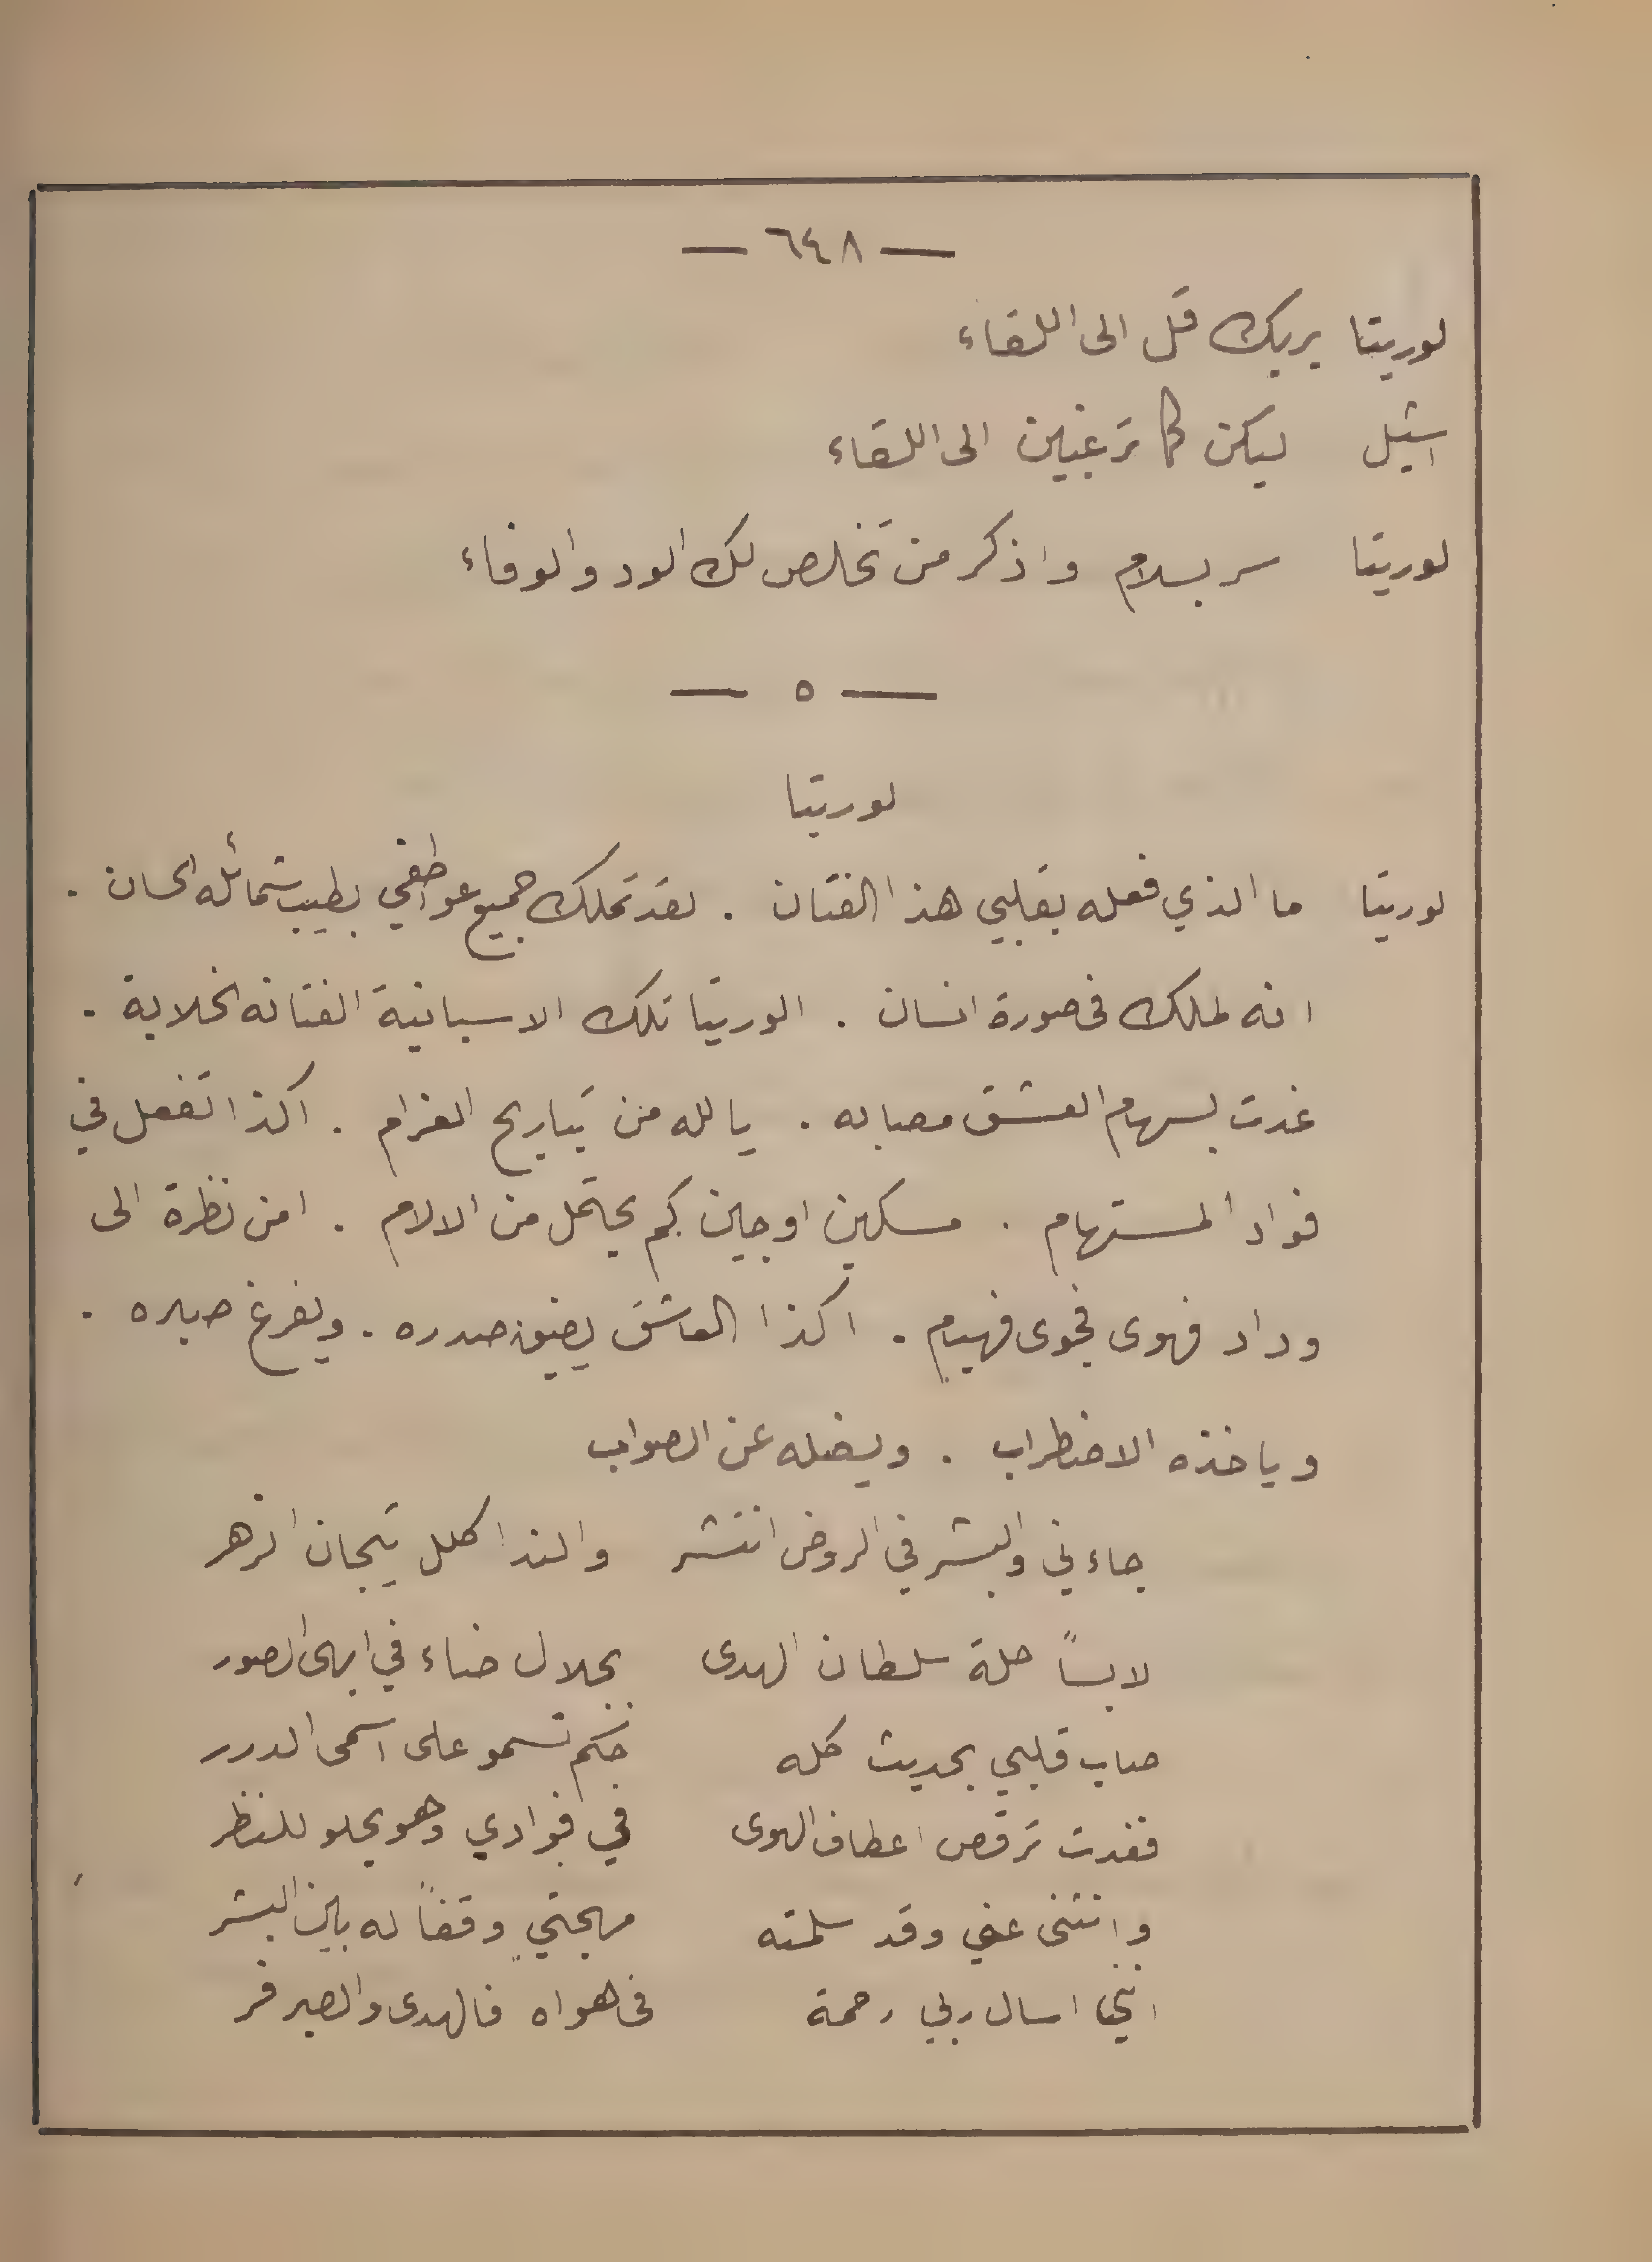 — ٦٤٨ —
لوريتا بربك قل الى اللقاء
اسيل ليكن كما ترغبين الى اللقاء
لوريتا سر بسلام واذكر من تخلص لك الود والوفاء
— ٥ —
لوريتا
لوريتا ما الذي فعله بقلبي هذا الفتان . لقد تملك جميع عواطفي بطيب شمائله الحسان .
انه لملك فى صورة انسان . الوريتا تلك الاسبانية الفتانه الخلابة .
غدت بسهام العشق مصابه . يالله من تباريح الغرام . اكذا تفعل في
فواد المستهام . مسكين اوجين كم يحتمل من الالام . امن نظرة الى
وداد فهوى فجوى فهيام . اكذا العاشق يضيق صدره . ويفرغ صبره .
وياخذه الاضطراب . ويضله عن الصواب
جاءني والبشر في الروض انتشر والندا كلل تيجان الزهر
لابساً حلة سلطان الهدى بجلال ضاء في ابهى الصور
صاب قلبي بحديث كله حكم تسمو على اسمى الدرر
فغدت ترقص اعطاف الهوى في فوادي وهو يحلو للنظر
وانثنى عني وقد سلمته مهجتي وقفاً له بين البشر
انني اسال ربي رحمة فى هواه فالهدى والصبر فر